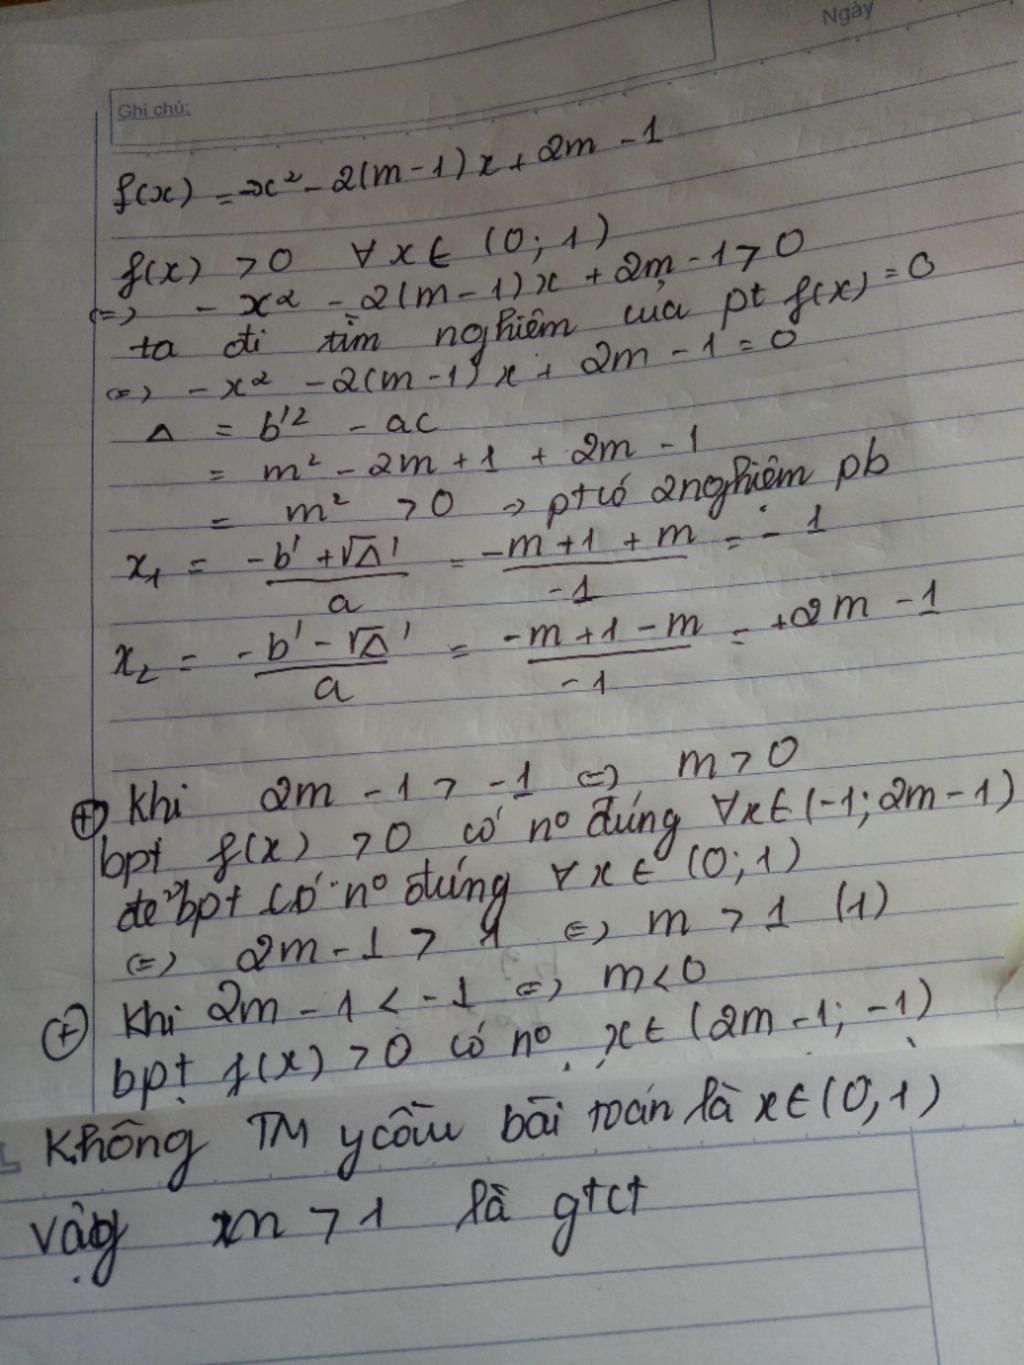 Ngày
Ghi chú:
f(x) = -x² - 2(m-1)x + 2m - 1
f(x) > 0 ∀x ∈ (0; 1)
(=) - x² - 2(m-1)x + 2m - 1 > 0
ta đi tìm nghiêm của pt f(x) = 0
(=) - x² - 2(m-1)x + 2m - 1 = 0
Δ = b'² - ac
= m² - 2m + 1 + 2m - 1
= m² > 0 → pt có 2 nghiêm pb
x₁ = (-b' + √Δ')/a = (-m + 1 + m)/-1 = - 1
x₂ = (-b' - √Δ')/a = (-m + 1 - m)/-1 = +2m - 1
(+) khi 2m - 1 > -1 (=) m > 0
bpt f(x) > 0 có nº đúng ∀x ∈ (-1; 2m-1)
để bpt có nº đúng ∀x ∈ (0; 1)
(=) 2m - 1 > 1 (=) m > 1 (1)
(+) khi 2m - 1 < -1 (=) m < 0
bpt f(x) > 0 có nº x ∈ (2m-1; -1)
không TM ycầu bài toán là x ∈ (0, 1)
vậy m > 1 là gtct